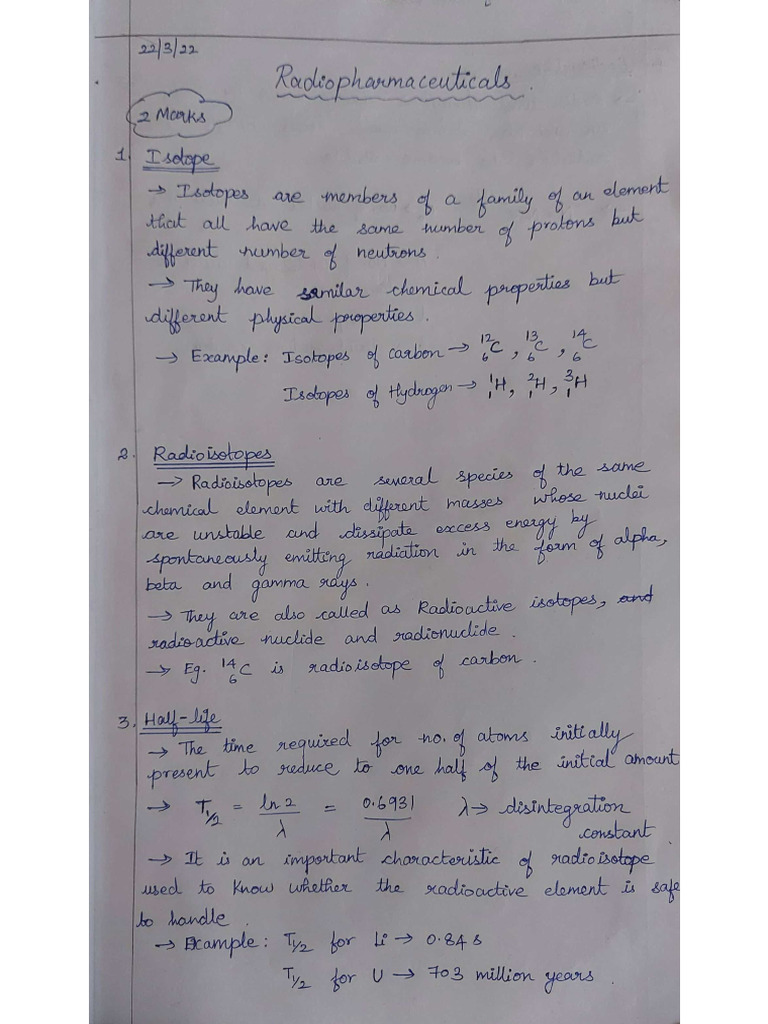 22/3/22
Radiopharmaceuticals.
2 Marks
1. Isotope
→ Isotopes are members of a family of an element
that all have the same number of protons but
different number of neutrons.
→ They have similar chemical properties but
different physical properties.
→ Example: Isotopes of carbon → ¹²₆C, ¹³₆C, ¹⁴₆C
Isotopes of Hydrogen → ¹₁H, ²₁H, ³₁H
2. Radioisotopes
→ Radioisotopes are several species of the same
chemical element with different masses whose nuclei
are unstable and dissipate excess energy by
spontaneously emitting radiation in the form of alpha,
beta and gamma rays.
→ They are also called as Radioactive isotopes, and
radioactive nuclide and radionuclide.
→ Eg. ¹⁴₆C is radioisotope of carbon.
3. Half-life
→ The time required for no. of atoms initially
present to reduce to one half of the initial amount
→ T1/2 = ln 2 / λ = 0.6931 / λ λ → disintegration
constant
→ It is an important characteristic of radioisotope
used to know whether the radioactive element is safe
to handle.
→ Example: T1/2 for Li → 0.84 s
T1/2 for U → 703 million years.